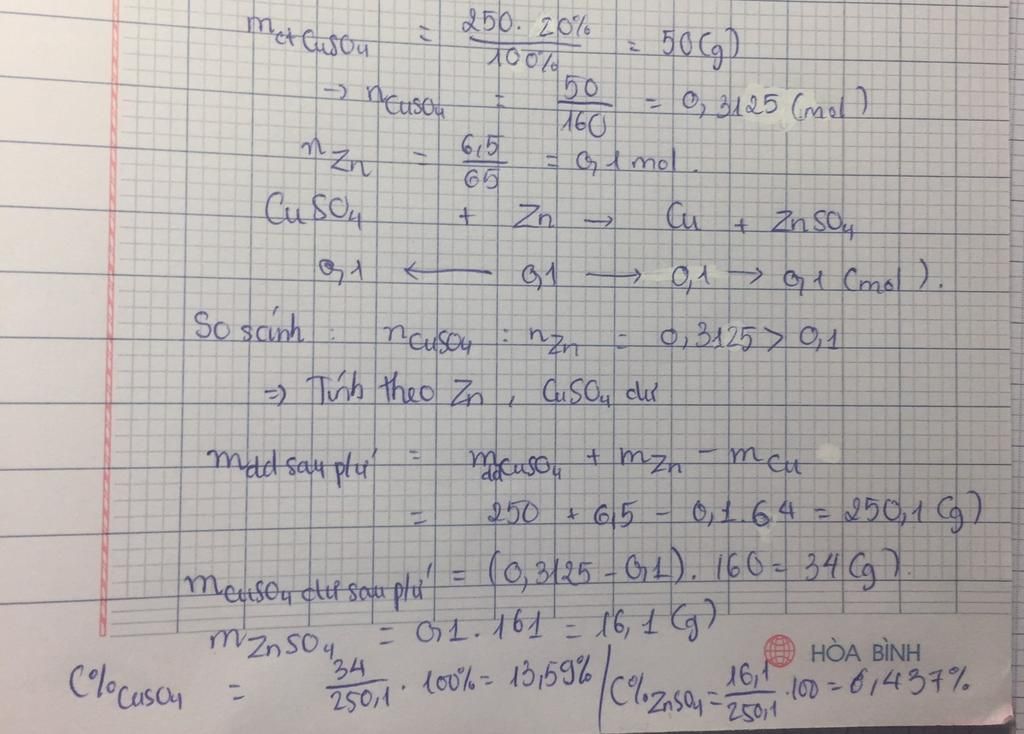 mct CuSO4 = 250. 20% / 100% = 50(g)
→ nCuSO4 = 50/160 = 0,3125 (mol)
nZn = 6,5/65 = 0,1 mol.
CuSO4 + Zn → Cu + ZnSO4
0,1 ← 0,1 → 0,1 → 0,1 (mol).
So sánh : nCuSO4 : nZn = 0,3125 > 0,1
=> Tính theo Zn, CuSO4 dư
mdd sau pứ = mddCuSO4 + mZn - mCu
= 250 + 6,5 - 0,1.64 = 250,1 (g)
mCuSO4 dư sau pứ = (0,3125 - 0,1). 160 = 34 (g).
mZnSO4 = 0,1. 161 = 16,1 (g)
HÒA BÌNH
C%CuSO4 = 34/250,1 . 100% = 13,59% / C%ZnSO4 = 16,1/250,1 .100 = 6,437%